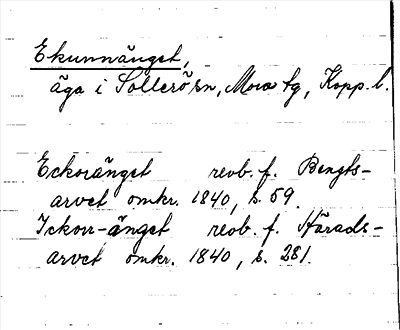 Ekunnänget,
äga i Sollerö sn, Mora tg, Kopp. l.
Eckoränget reob. f. Bengts-
arvet omkr. 1840, s. 59.
Ickorr-änget reob. f. Härads-
arvet omkr. 1840, s. 281.